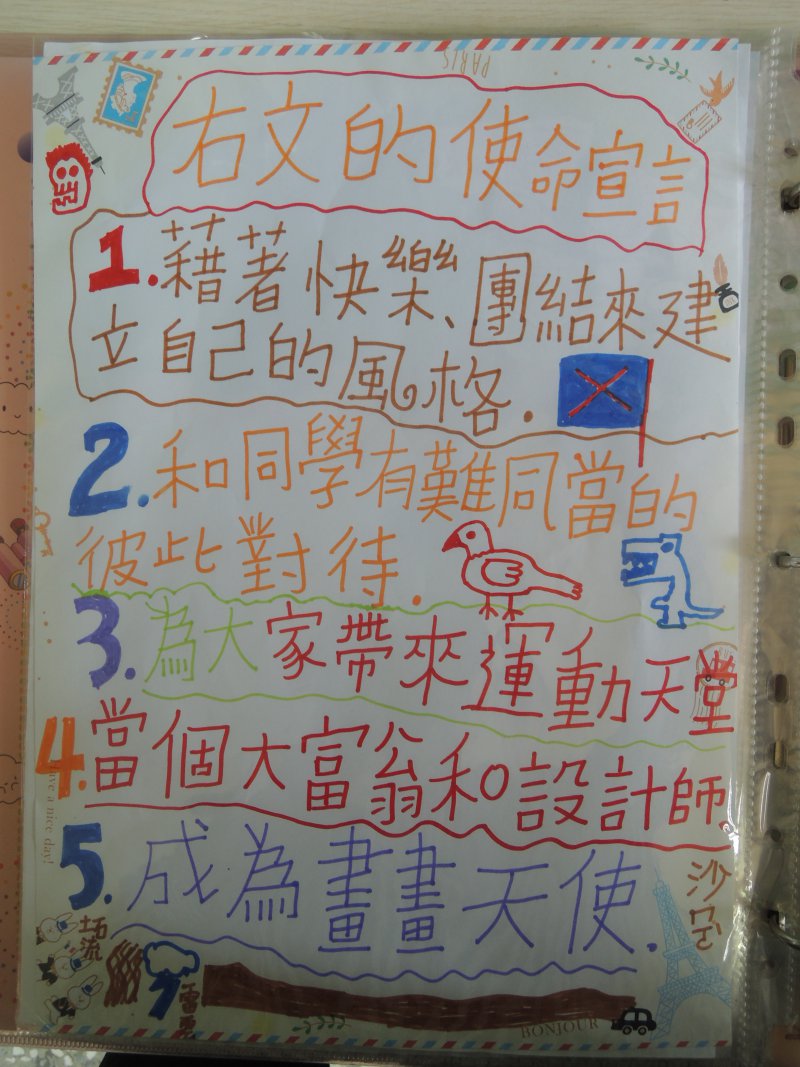 PARIS
右文的使命宣言
1.藉著快樂、團結來建
立自己的風格.
2.和同學有難同當的
彼此對待.
3.為大家帶來運動天堂
4.當個大富翁和設計師.
5.成為畫畫天使.
have a nice day!
土石流
BONJOUR